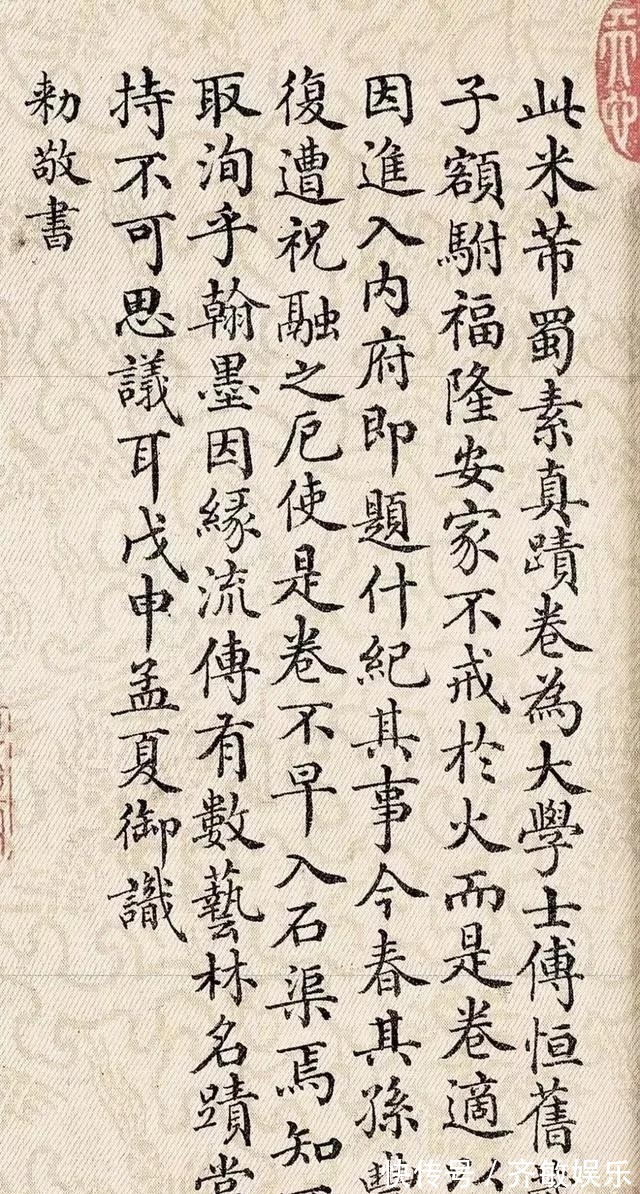 此米芾蜀素真蹟卷為大學士傅恒舊
子額駙福隆安家不戒於火而是卷適
因進入内府即題什紀其事今春其孫
復遭祝融之厄使是卷不早入石渠焉知
取洵乎翰墨因緣流傳有數藝林名蹟
持不可思議耳戊申孟夏御識
勅敬書
快传号／齐敏娱乐